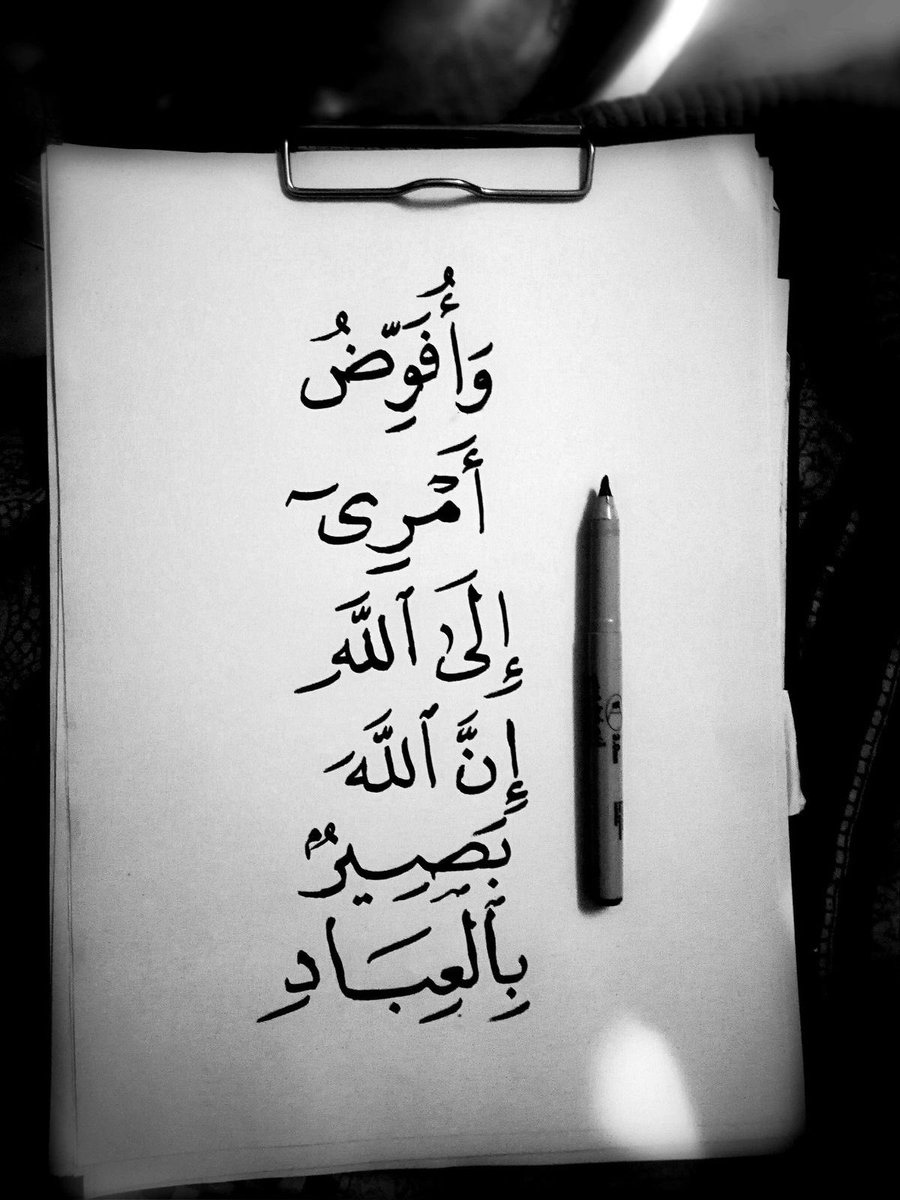 وَأُفَوِّضُ
أَمْرِىٓ
إِلَى ٱللَّهِ
إِنَّ ٱللَّهَ
بَصِيرٌۢ
بِٱلْعِبَادِ